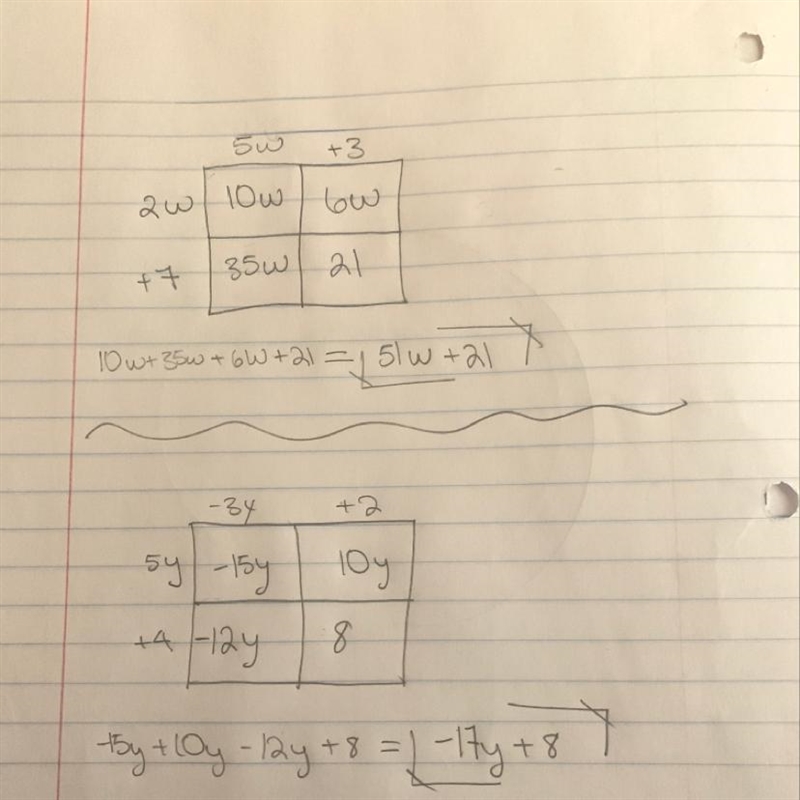 5w +3
2w 10w 6w
+7 35w 21
10w+35w+6w+21 = 51w +21
-3y +2
5y -15y 10y
+4 -12y 8
-15y+10y-12y+8 = -17y+8